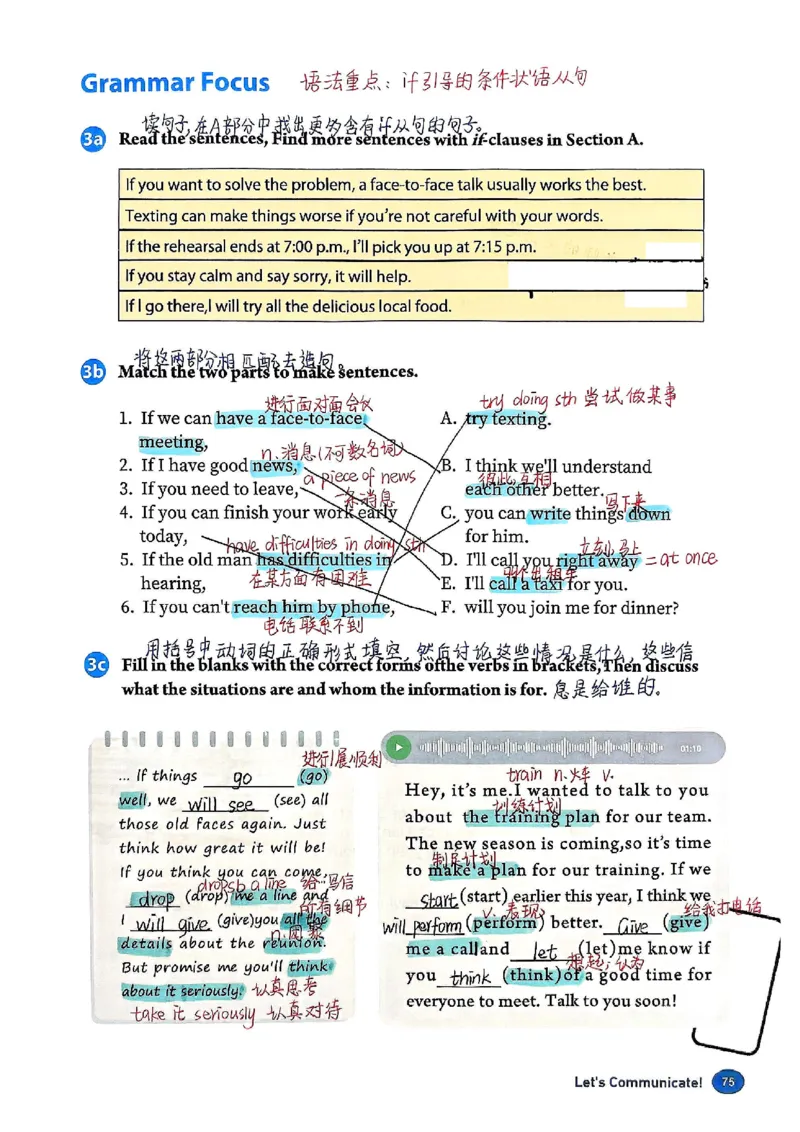 Grammar Focus 语法重点：if引导的条件状语从句
读句子,在A部分中找出更多含有if从句的句子。
3a Read the sentences, Find more sentences with if-clauses in Section A.
If you want to solve the problem, a face-to-face talk usually works the best.
Texting can make things worse if you're not careful with your words.
If the rehearsal ends at 7:00 p.m., I'll pick you up at 7:15 p.m.
If you stay calm and say sorry, it will help.
If I go there,I will try all the delicious local food.
将这两部分相匹配去造句。
3b Match the two parts to make sentences.
进行面对面会议
1. If we can have a face-to-face
meeting,
n.消息(不可数名词)
2. If I have good news,
a piece of news
3. If you need to leave,
一条消息
4. If you can finish your work early
today,
have difficulties in doing sth
5. If the old man has difficulties in
hearing,
在某方面有困难
6. If you can't reach him by phone,
电话联系不到
try doing sth 尝试做某事
A. try texting.
B. I think we'll understand
彼此,互相
each other better.
写下来
C. you can write things down
for him.
立刻,马上
D. I'll call you right away = at once
叫出租车
E. I'll call a taxi for you.
F. will you join me for dinner?
用括号中动词的正确形式填空,然后讨论这些情况是什么，这些信
3c Fill in the blanks with the correct forms ofthe verbs in brackets,Then discuss
what the situations are and whom the information is for. 息是给谁的。
进行/展/顺利
... If things go (go)
well, we will see (see) all
those old faces again. Just
think how great it will be!
If you think you can come,
drop sb a line 给…写信
drop (drop) me a line and
所有细节
I will give (give)you all the
details about the reunion.
n.团聚
But promise me you'll think
about it seriously. 认真思考
take it seriously 认真对待
01:10
train n.火车 v.
Hey, it's me.I wanted to talk to you
训练计划
about the training plan for our team.
The new season is coming,so it's time
制定计划
to make a plan for our training. If we
start (start) earlier this year, I think we
v.表现 给我打电话
will perform (perform) better. Give (give)
me a call and let (let)me know if
想起；认为
you think (think)of a good time for
everyone to meet. Talk to you soon!
Let's Communicate! 75